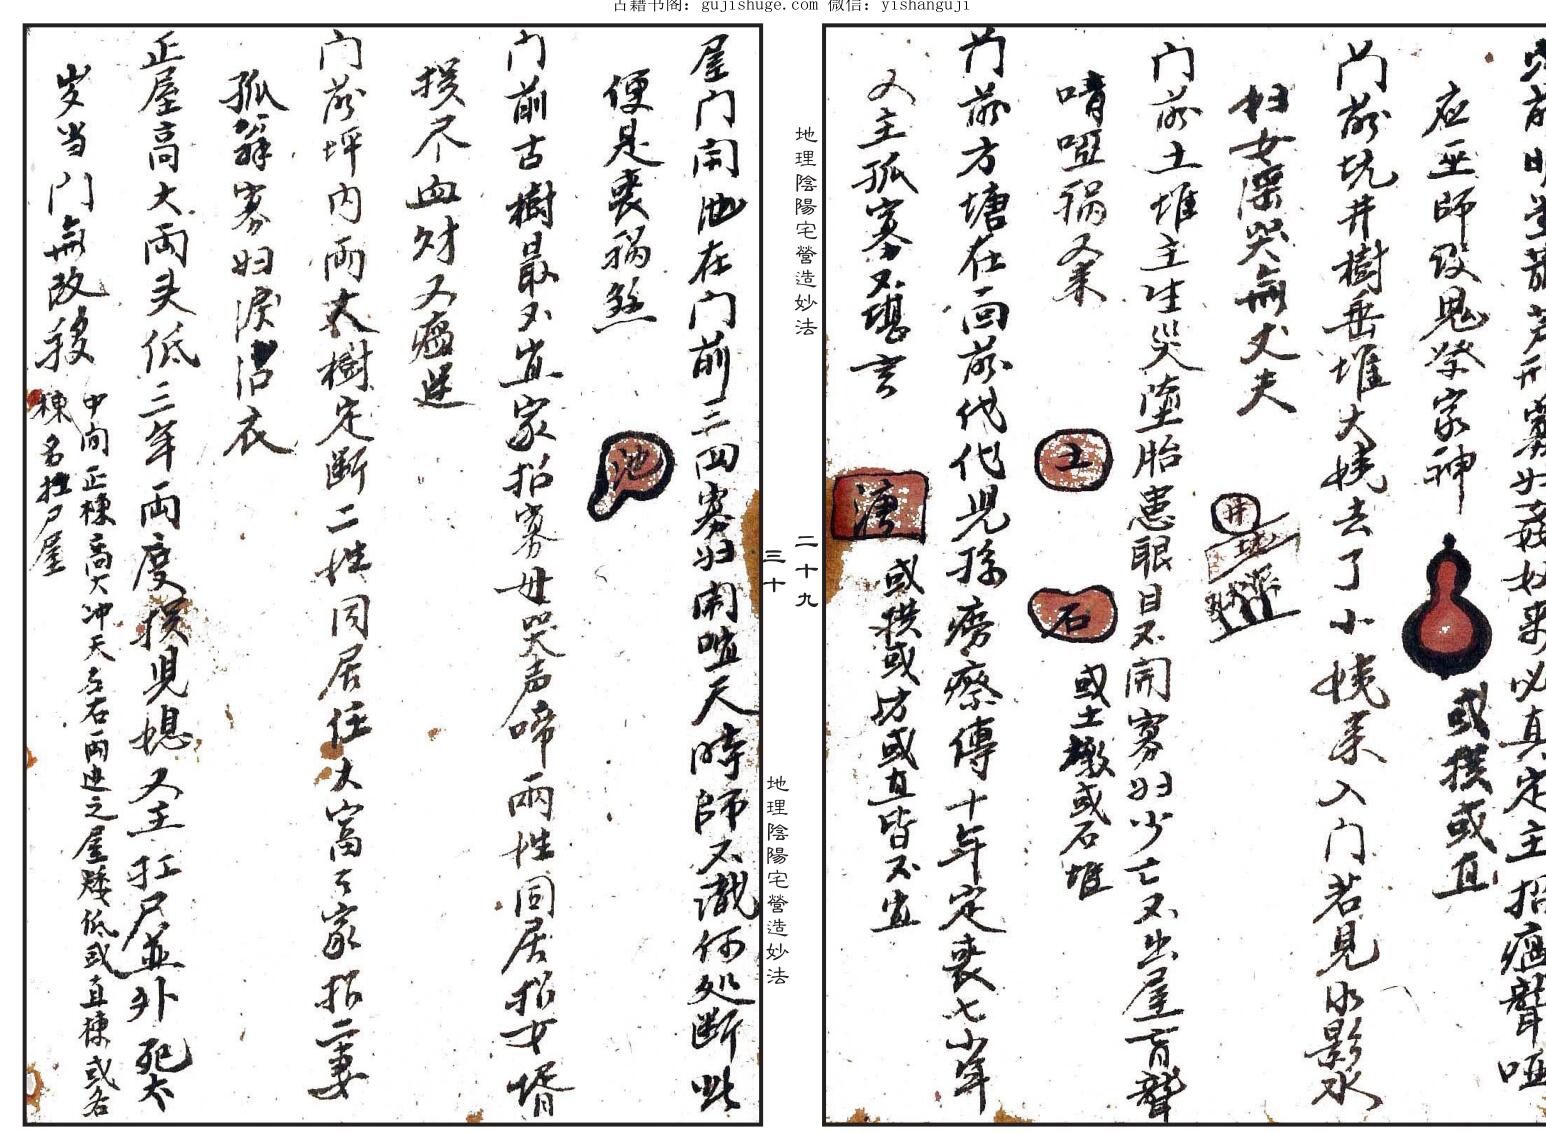 古籍书阁：gujishuge.com 微信：yishanguji
应巫師设鬼祭家神
或摸或直
门前坑井樹垂堆大姨去了小姨来入门若見水影水
妇女深哭無丈夫
井
门前土堆主生災墮胎患眼目不開寡妇少亡又出屋盲聾
啃啞禍又来
土
石
或土墩或石堆
门前方塘在面前代代児孫癆瘵傳十年定喪七少年
又主孤寡不堪言
塘
或横或方或直皆不宜
地理陰陽宅營造妙法
二十九
屋门開池在门前三四寡妇鬧喧天時師不識何処断此
便是喪禍煞
池
门前古樹最不宜家招寡母哭声啼兩性同居招女壻
损尽血财又瘟迍
门前坪内兩大樹定断二性同居住大富之家招二妻
孤翁寡妇淚沾衣
正屋高大両头低三年両度损児媳又主扛尸並外死太
岁当门無改移
中间正棟高大冲天左右两边之屋矮低或直棟或名
棟名扛尸屋
三十
地理陰陽宅營造妙法